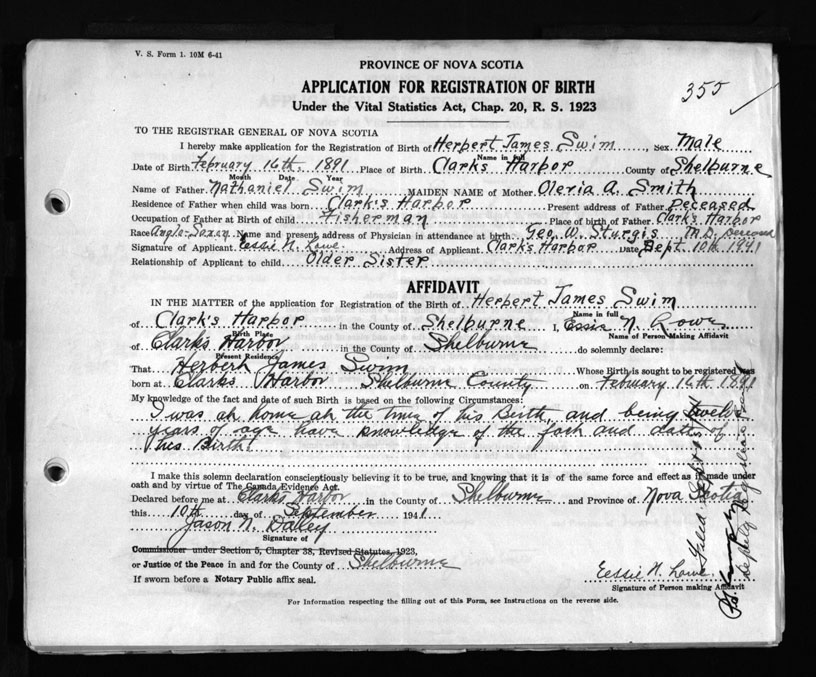 V. S. Form 1. 10M 6-41
PROVINCE OF NOVA SCOTIA
APPLICATION FOR REGISTRATION OF BIRTH
Under the Vital Statistics Act, Chap. 20, R. S. 1923
355
TO THE REGISTRAR GENERAL OF NOVA SCOTIA
I hereby make application for the Registration of Birth of Herbert James Swim, Sex Male
Name in full
Date of Birth February 16th, 1891 Place of Birth Clarks Harbor County of Shelburne
Month Date Year
Name of Father Nathaniel Swim MAIDEN NAME of Mother Oleria A. Smith
Residence of Father when child was born Clark's Harbor Present address of Father Deceased
Occupation of Father at Birth of child Fisherman Place of birth of Father Clarks Harbor
Race Anglo-Saxon Name and present address of Physician in attendance at birth Geo. W. Sturgis M.D. Deceased
Signature of Applicant Essie N. Lowe. Address of Applicant Clark's Harbor Date Sept. 10th 1941
Relationship of Applicant to child Older Sister
AFFIDAVIT
IN THE MATTER of the application for Registration of the Birth of Herbert James Swim
Name in full
of Clark's Harbor in the County of Shelburne I, Essie N. Lowe
Birth Place
Name of Person Making Affidavit
of Clarks Harbor in the County of Shelburne do solemnly declare:
Present Residence
That Herbert James Swim Whose Birth is sought to be registered was
born at Clarks Harbor Shelburne County on February 16th 1891
My knowledge of the fact and date of such Birth is based on the following Circumstances:
I was at home at the time of his Birth, and being twelve
years of age have knowledge of the fact and date of
this Birth
I make this solemn declaration conscientiously believing it to be true, and knowing that it is of the same force and effect as if made under
oath and by virtue of The Canada Evidence Act.
Declared before me at Clarks Harbor in the County of Shelburne and Province of Nova Scotia
this 10th day of September 1941
Jason N. Dalley
Signature of
Commissioner under Section 5, Chapter 38, Revised Statutes, 1923,
or Justice of the Peace in and for the County of Shelburne
If sworn before a Notary Public affix seal.
Essie N. Lowe
Signature of Person making Affidavit
For Information respecting the filling out of this Form, see Instructions on the reverse side.